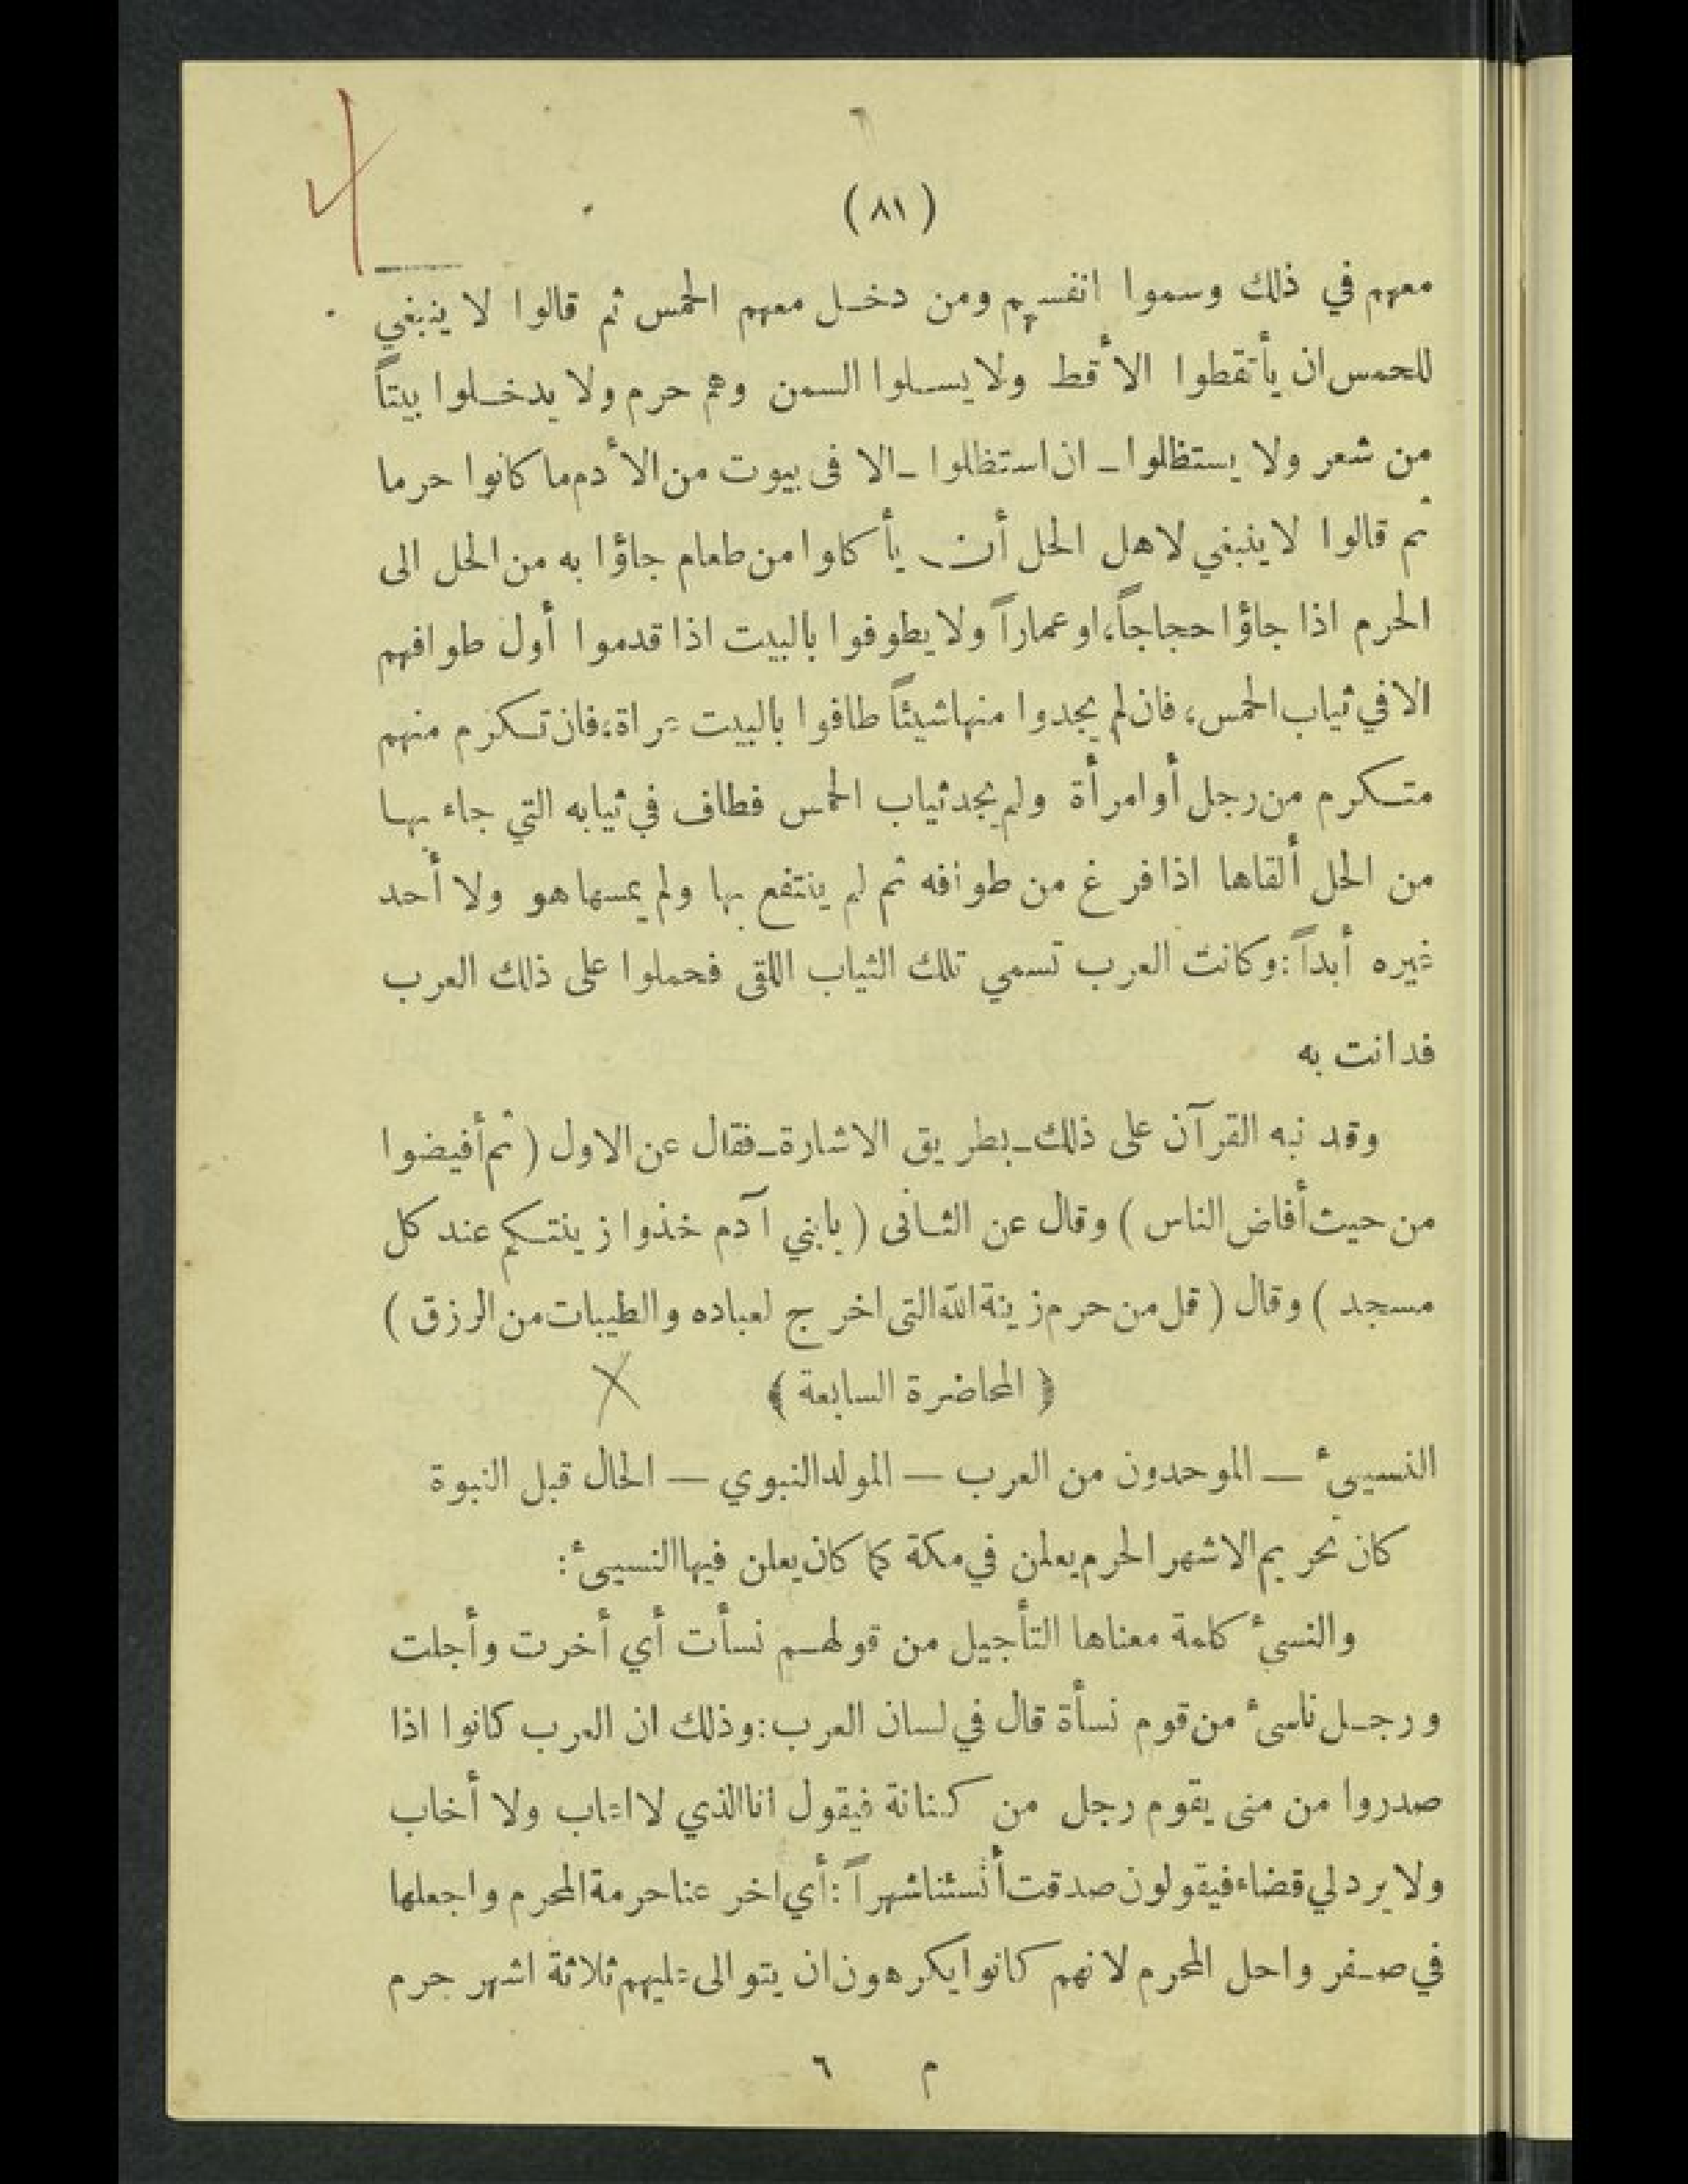 ٦
(٨١)
معهم في ذلك وسموا انفسهم ومن دخل معهم الحمس ثم قالوا لا ينبغي
للحمس ان يأتقطوا الأقط ولا يسلوا السمن وهم حرم ولا يدخلوا بيتاً
من شعر ولا يستظلوا ـ ان استظلوا ـ الا فى بيوت من الأدم ما كانوا حرما
ثم قالوا لا ينبغي لاهل الحل أن يأكلوا من طعام جاؤا به من الحل الى
الحرم اذا جاؤا حجاجاً، او عماراً ولا يطوفوا بالبيت اذا قدموا أول طوافهم
الا في ثياب الحمس، فان لم يجدوا منها شيئاً طافوا بالبيت عراة؛ فان تكرم منهم
متكرم من رجل أو امرأة ولم يجد ثياب الحمس فطاف في ثيابه التي جاء بها
من الحل ألقاها اذا فرغ من طوافه ثم لم ينتفع بها ولم يمسها هو ولا أحد
غيره أبداً: وكانت العرب تسمي تلك الثياب اللقى فحملوا على ذلك العرب
فدانت به
وقد نبه القرآن على ذلك ـ بطريق الاشارة ـ فقال عن الاول ( ثم أفيضوا
من حيث أفاض الناس ) وقال عن الثانى ( يابني آدم خذوا زينتكم عند كل
مسجد ) وقال ( قل من حرم زينة الله التى اخرج لعباده والطيبات من الرزق )
﴿ المحاضرة السابعة ﴾
النسيىء — الموحدون من العرب — المولد النبوي — الحال قبل النبوة
كان تحريم الاشهر الحرم يعلن في مكة كما كان يعلن فيها النسيىء:
والنسىء كلمة معناها التأجيل من قولهم نسأت أي أخرت وأجلت
ورجل ناسىء من قوم نسأة قال في لسان العرب: وذلك ان العرب كانوا اذا
صدروا من منى يقوم رجل من كنانة فيقول انا الذي لا اعاب ولا أخاب
ولا يرد لي قضاء فيقولون صدقت أنسئنا شهراً: أي اخر عنا حرمة المحرم واجعلها
في صفر واحل المحرم لانهم كانوا يكرهون ان يتوالى عليهم ثلاثة اشهر حرم
م ٦